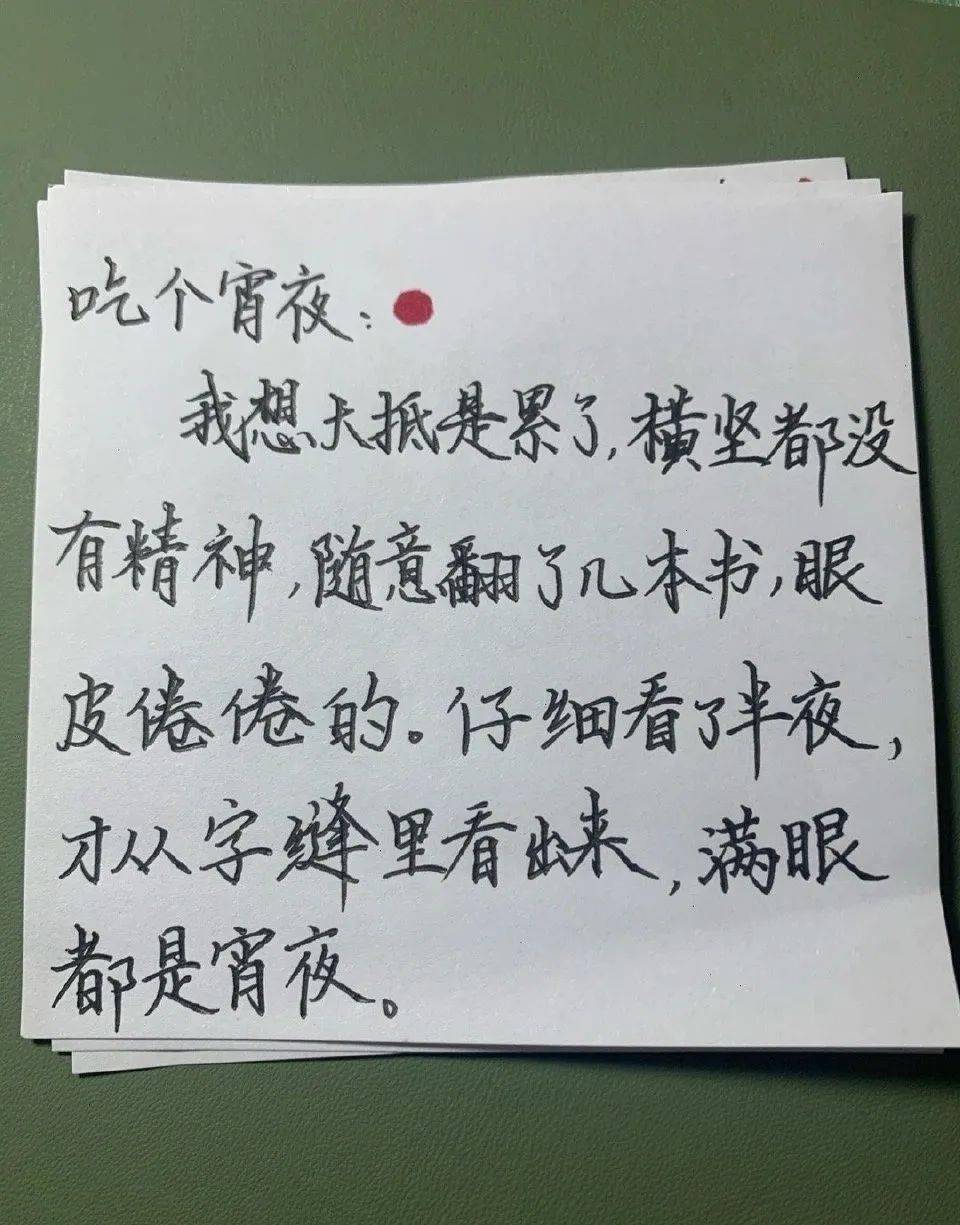 吃个宵夜：
我想大抵是累了，横竖都没
有精神，随意翻了几本书，眼
皮倦倦的。仔细看了半夜，
才从字缝里看出来，满眼
都是宵夜。